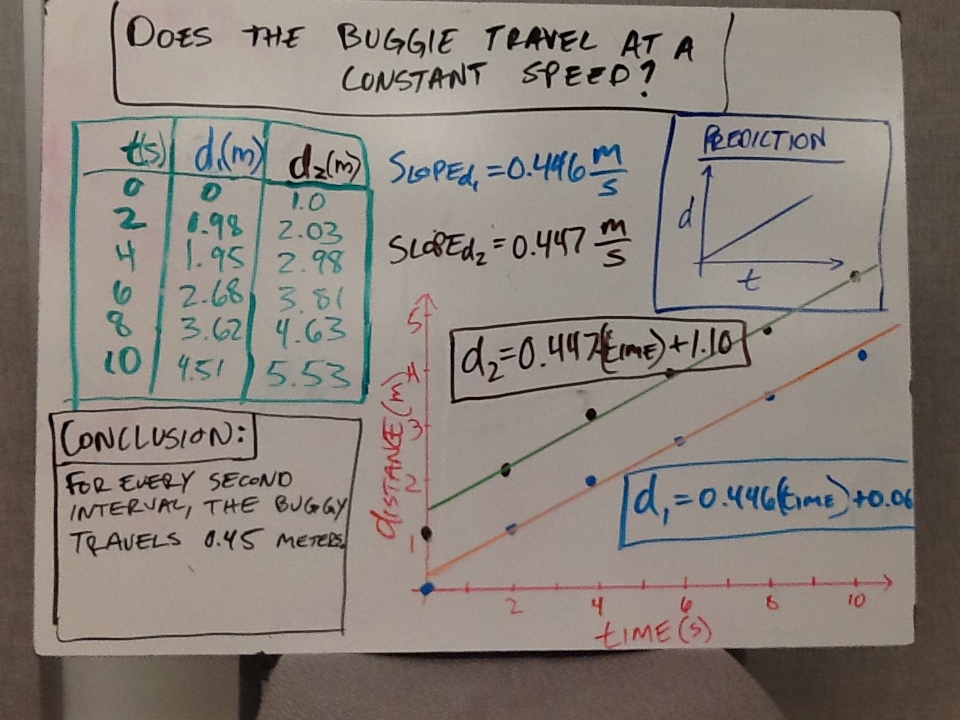 DOES THE BUGGIE TRAVEL AT A
CONSTANT SPEED?
t(s) d₁(m) d₂(m)
0 0 1.0
2 0.98 2.03
4 1.95 2.98
6 2.68 3.81
8 3.62 4.63
10 4.51 5.53
SLOPEd₁ = 0.446 m/s
SLOPEd₂ = 0.447 m/s
PREDICTION
d
t
CONCLUSION:
FOR EVERY SECOND
INTERVAL, THE BUGGY
TRAVELS 0.45 METERS.
d₂ = 0.447(TIME) + 1.10
d₁ = 0.446(TIME) + 0.06
DISTANCE (m)
5
4
3
2
1
2 4 6 8 10
TIME (s)